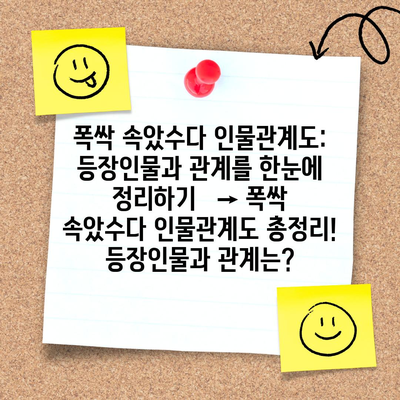 폭싹 속았수다 인물관계도:
등장인물과 관계를 한눈에
정리하기 → 폭싹
속았수다 인물관계도 총정리!
등장인물과 관계는?